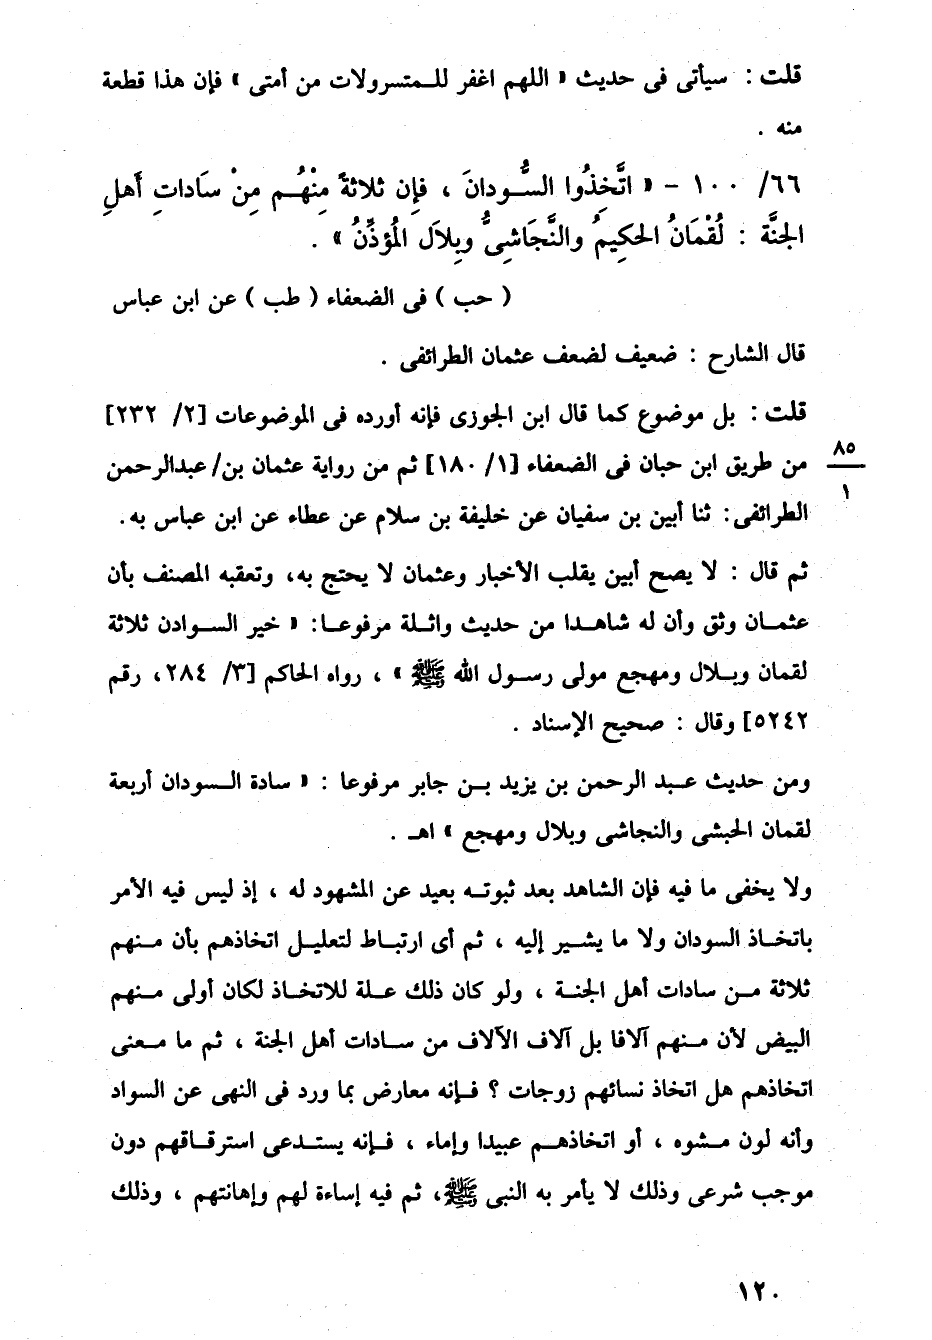 قلت : سيأتى فى حديث « اللهم اغفر للـمتسرولات من أمتى » فإن هذا قطعة
منه .
٦٦/ ١٠٠ - « اتَّخِذُوا السُّودانَ ، فإِن ثلاثةً مِنْهُم مِنْ سَاداتِ أَهلِ
الجنَّة : لُقْمَانُ الحكِيمُ والنَّجَاشِىُّ وبِلاَل المُؤذِّنُ » .
( حب ) فى الضعفاء ( طب ) عن ابن عباس
قال الشارح : ضعيف لضعف عثمان الطرائفى .
قلت : بل موضوع كما قال ابن الجوزى فإنه أورده فى الموضوعات [٢/ ٢٣٢]
من طريق ابن حبان فى الضعفاء [١/ ١٨٠] ثم من رواية عثمان بن/ عبدالرحمن
٨٥
١
الطرائفى: ثنا أبين بن سفيان عن خليفة بن سلام عن عطاء عن ابن عباس به.
ثم قال : لا يصح أبين يقلب الأخبار وعثمان لا يحتج به، وتعقبه المصنف بأن
عثمـان وثق وأن له شاهـدا من حديث واثـلة مرفوعـا: « خير السـوادن ثلاثة
لقمان وبـلال ومهجع مولى رسـول الله ﷺ » ، رواه الحاكم [٣/ ٢٨٤، رقم
٥٢٤٢] وقال : صحيح الإسناد .
ومن حديث عـبد الرحمن بن يزيد بـن جابر مرفوعا : « سادة الـسودان أربعة
لقمان الحبشى والنجاشى وبلال ومهجع » اهـ .
ولا يخفى ما فيه فإن الشاهد بعد ثبوتـه بعيد عن المشهود له ، إذ ليس فيه الأمر
باتخـاذ السودان ولا ما يشـير إليه ، ثـم أى ارتبـاط لتعليـل اتخاذهم بأن مـنهم
ثلاثة مـن سادات أهل الجنـة ، ولو كان ذلك عـلة للاتخـاذ لكان أولى مـنهم
البيض لأن مـنهم آلافا بل آلاف الآلاف من سـادات أهل الجنة ، ثم ما مـعنى
اتخاذهم هل اتخاذ نسائهم زوجات ؟ فـإنه معارض بما ورد فى النهى عن السواد
وأنه لون مـشوه ، أو اتخاذهـم عبيدا وإماء ، فـإنه يستـدعى استرقـاقهم دون
موجب شرعى وذلك لا يأمر به النبى ﷺ، ثم فيه إساءة لهم وإهانتهم ، وذلك
١٢٠